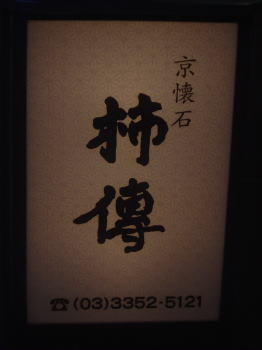 京懐石
柿傳
☎(03)3352-5121